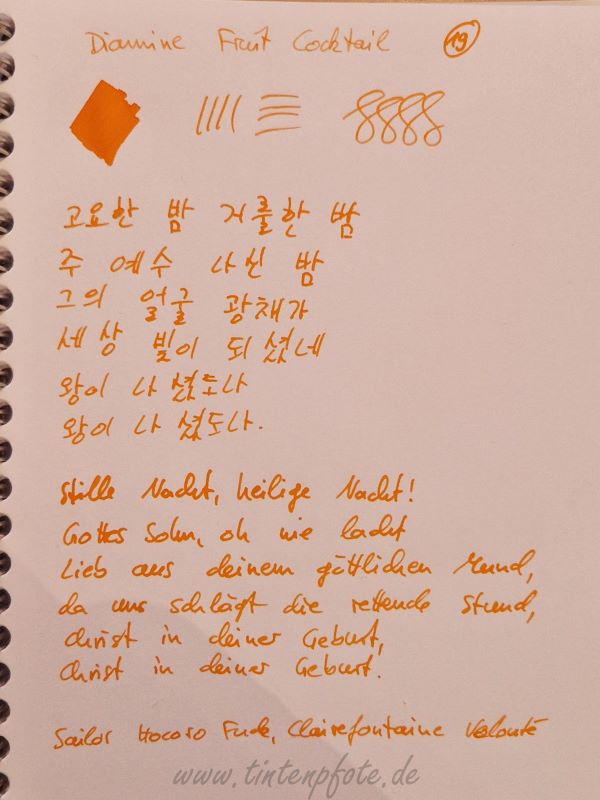 Diamine Fruit Cocktail 19
고요한 밤 거룩한 밤
주 예수 나신 밤
그의 얼굴 광채가
세상 빛이 되셨네
왕이 나셨도다
왕이 나셨도다.
Stille Nacht, heilige Nacht!
Gottes Sohn, oh wie lacht
Lieb aus deinem göttlichen Mund,
da uns schlägt die rettende Stund,
Christ in deiner Geburt,
Christ in deiner Geburt.
Sailor Hocoro Fude, Clairefontaine Velouté
www.tintenpfote.de